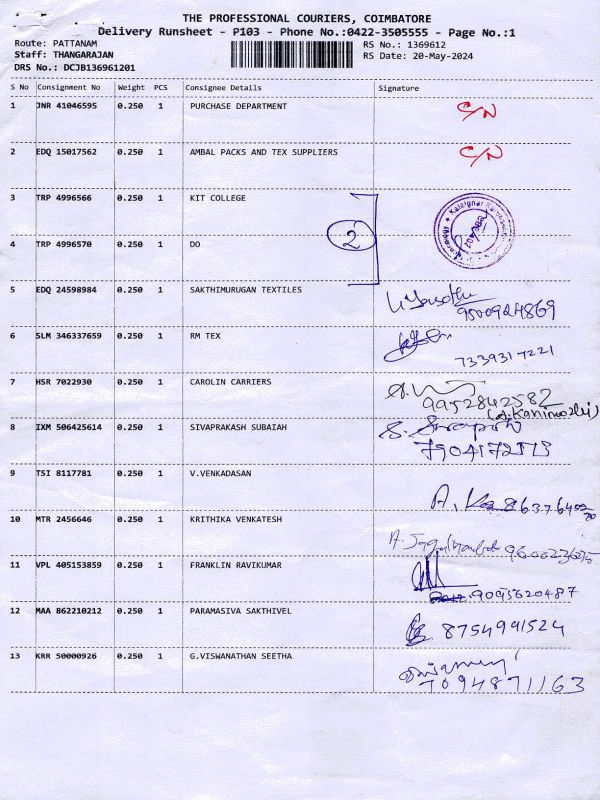 THE PROFESSIONAL COURIERS, COIMBATORE
Delivery Runsheet - P103 - Phone No.:0422-3505555 - Page No.:1
Route: PATTANAM RS No.: 1369612
Staff: THANGARAJAN RS Date: 20-May-2024
DRS No.: DCJB136961201
S No Consignment No Weight PCS Consignee Details Signature
1 JNR 41046595 0.250 1 PURCHASE DEPARTMENT C/N
2 EDQ 15017562 0.250 1 AMBAL PACKS AND TEX SUPPLIERS C/N
3 TRP 4996566 0.250 1 KIT COLLEGE
2
4 TRP 4996570 0.250 1 DO
5 EDQ 24598984 0.250 1 SAKTHIMURUGAN TEXTILES
9500924869
6 SLM 346337659 0.250 1 RM TEX
7339317221
7 HSR 7022930 0.250 1 CAROLIN CARRIERS
9952842582
(A.Kanimozhi)
8 IXM 506425614 0.250 1 SIVAPRAKASH SUBAIAH
9 TSI 8117781 0.250 1 V.VENKADASAN
10 MTR 2456646 0.250 1 KRITHIKA VENKATESH
11 VPL 405153859 0.250 1 FRANKLIN RAVIKUMAR
9095620487
12 MAA 862210212 0.250 1 PARAMASIVA SAKTHIVEL
8754991524
13 KRR 50000926 0.250 1 G.VISWANATHAN SEETHA
7094871163